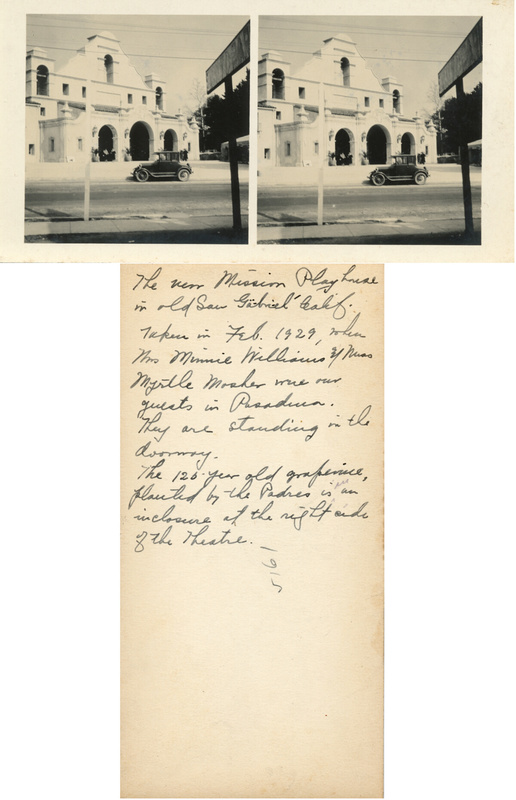 The new Mission Playhouse
in old San Gabriel Calif.
Taken in Feb. 1929, when
Mrs Minnie Williams & Miss
Myrtle Mosher were our
guests in Pasadena.
They are standing in the
doorway.
The 125-year old grapevine,
planted by the Padres is in an
inclosure at the right side
of the Theatre.
5161